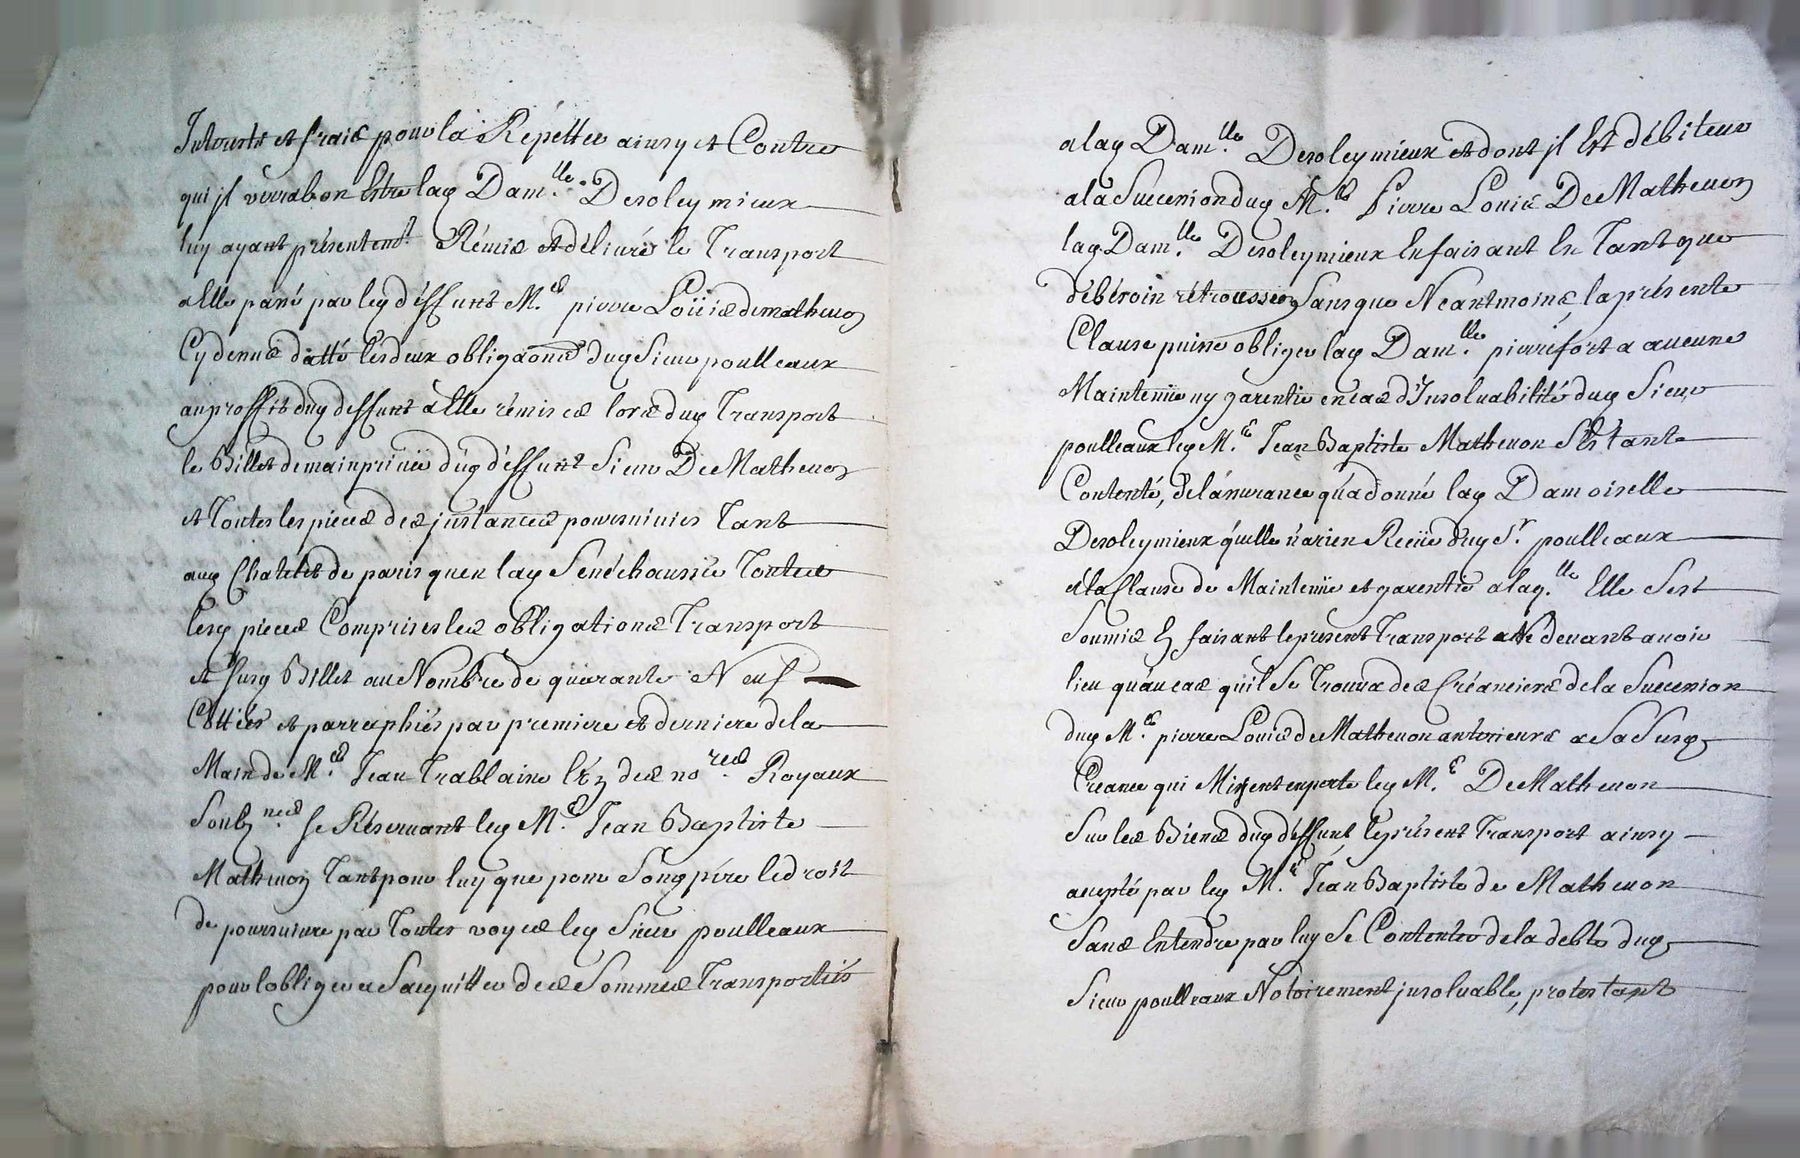 Interests et fraix pour la Répetter ainsy et Contre
qui jl verra bon Estre laq Dam.lle Desoleymieux
luy ayant présentemt Rémis et délivré le Transport
a Elle passé par leq déffunt M.e pierre Loüis de mathevon
Cy dessus datté les deux obligaons duq Sieur poulleaux
au proffit duq deffunt a Elle rémises lors duq Transport
le Billet de main privée duq déffunt Sieur De Mathevon
et Toutes les pieces des jnstances poursuivies Tant
auq Chatelet de paris qu'en laq Sénéchaussée Toutes
lesq pieces Comprises les obligations Transport
et susq Billet au Nombre de quarante Neuf
Cottées et parraphées par premiere et derniere de la
Main de M.e Jean Trablaine L'un des no.res Royaux
Soubz.nes se Réservant leq M.e Jean Baptiste
Mathevon Tant pour luy que pour Son père le droit
de poursuivre par Toutes voyes leq Sieur poulleaux
pour lobliger a Sacquitter des Sommes Transportées
a laq Dam.lle Desoleymieux et dont jl Est débiteur
a la Succession duq M.e Pierre Louis De Mathevon
laq Dam.lle Desoleymieux En faisant En Tant que
débésoin rétrocession Sans que Néantmoins la présente
Clause puisse obliger laq Dam.lle pierrefort a aucune
Maintenüe ny garentie en cas d'Insolvabilité duq Sieur
poulleaux leq M.e Jean Baptiste Mathevon S'Etant
Contenté, de lássurance qu'a donné laq Damoiselle
Desoleymieux qu'elle n'a rien Reçüe duq S.r poulleaux
et la Clause de Maintenüe et garentie a laq.lle Elle Sest
Soumise En faisant le présent Transport Ne devant avoir
lieu qu'au cas qu'il Se Trouva des Créanciers de la Succession
duq M.e pierre Louis de Mathevon anterieurs a Sa Susq
Créance qui Missent en perte leq M.e De Mathevon
Sur les Biens duq déffunt le présent Transport ainsy
accepté par leq M.e Jean Baptiste de Mathevon
Sans Entendre par luy Se Contenter de la debte duq
Sieur poulleaux Notoirement jnsolvable, protestant